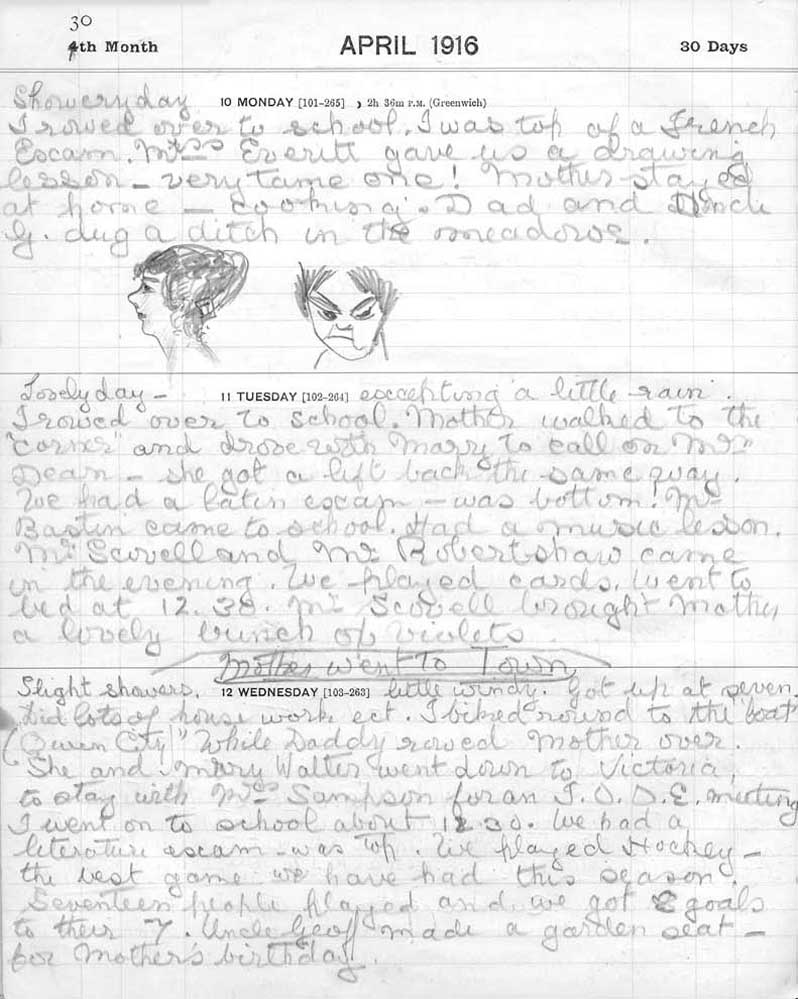 30
4th Month APRIL 1916 30 Days
Showery day 10 MONDAY [101-265] ☽ 2h 36m P.M. (Greenwich)
I rowed over to school. I was top of a French
Escam. Mrs Everitt gave us a drawing
lesson – very tame one! Mother stayed
at home – cooking. Dad and Uncle
G. dug a ditch in the meadows.
Lovely day – 11 TUESDAY [102-264] escepting a little rain.
I rowed over to school. Mother walked to the
"corner" and drove with Mary to call on Mrs
Dean – she got a lift back the same way.
We had a latin escam – was bottom! Mr
Bastin came to school. Had a music lesson.
Mr Scovell and Mr Robertshaw came
in the evening. We played cards. Went to
bed at 12.30. Mr Scovell brought Mother
a lovely bunch of violets.
Mother went to Town
Slight showers. 12 WEDNESDAY [103-263] little windy. Got up at seven.
Did lots of house work ect. I biked round to the boat
(Queen City)" While Daddy rowed Mother over.
She and Mary Walter went down to Victoria,
to stay with Mrs Sampson for an I.O.D.E. meeting
I went on to school about 12.30. We had a
literature escam – was top. We played Hockey –
the best game we have had this season.
Seventeen people played and we got 2 goals
to their 7. Uncle Geoff made a garden seat –
for Mother's birthday.